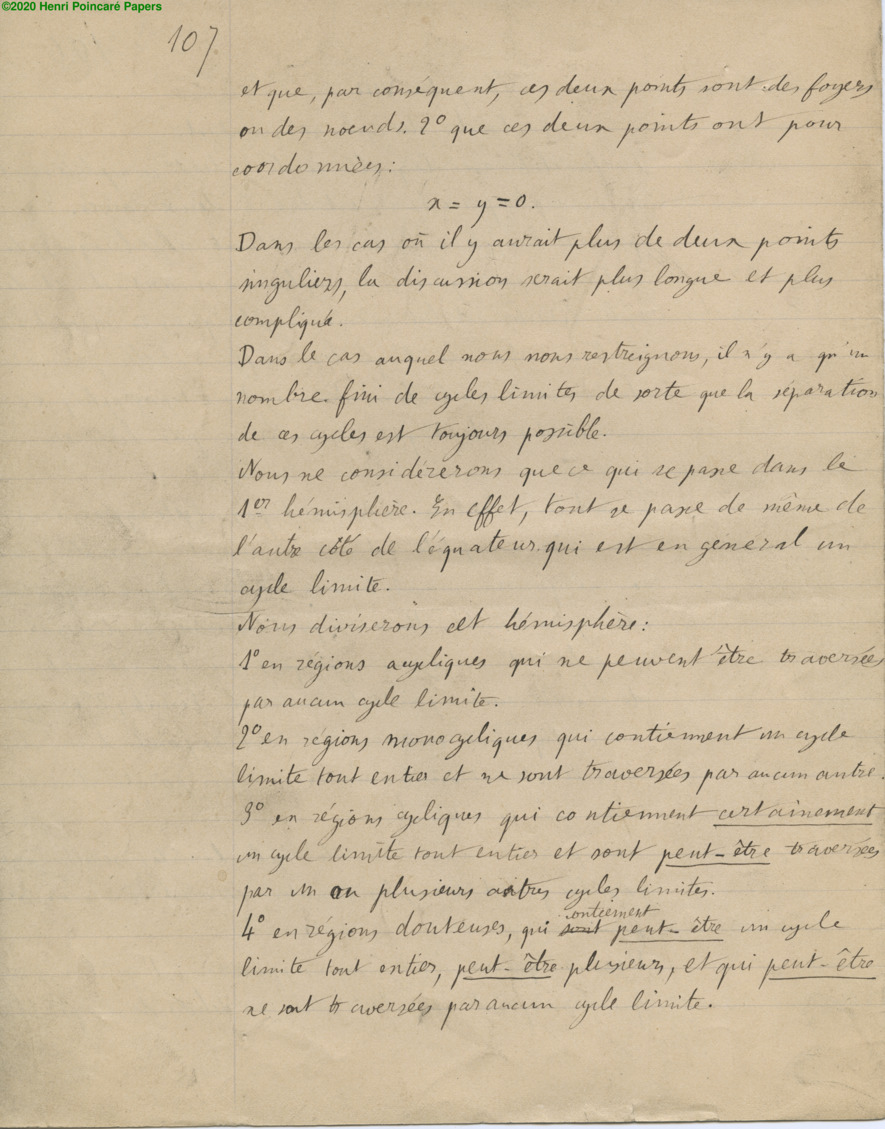 ©2020 Henri Poincaré Papers
107
et que, par conséquent, ces deux points sont des foyers
ou des noeuds. 2° que ces deux points ont pour
coordonnées:
x = y = 0.
Dans les cas où il y aurait plus de deux points
singuliers, la discussion serait plus longue et plus
compliqué.
Dans le cas auquel nous nous restreignons, il n'y a qu'un
nombre fini de cycles limites de sorte que la séparation
de ces cycles est toujours possible.
Nous ne considérerons que ce qui se passe dans le
1er hémisphère. En effet, tout se passe de même de
l'autre côté de l'équateur qui est en general un
cycle limite.
Nous diviserons cet hémisphère:
1° en régions acycliques qui ne peuvent être traversées
par aucun cycle limite.
2° en régions monocycliques qui contiennent un cycle
limite tout entier et ne sont traversées par aucun autre.
3° en régions cycliques qui contiennent certainement
un cycle limite tout entier et sont peut-être traversées
par un ou plusieurs autres cycles limites.
contiennent
4° en régions douteuses, qui sont peut-être un cycle
limite tout entier, peut-être plusieurs, et qui peut-être
ne sont traversées par aucun cycle limite.